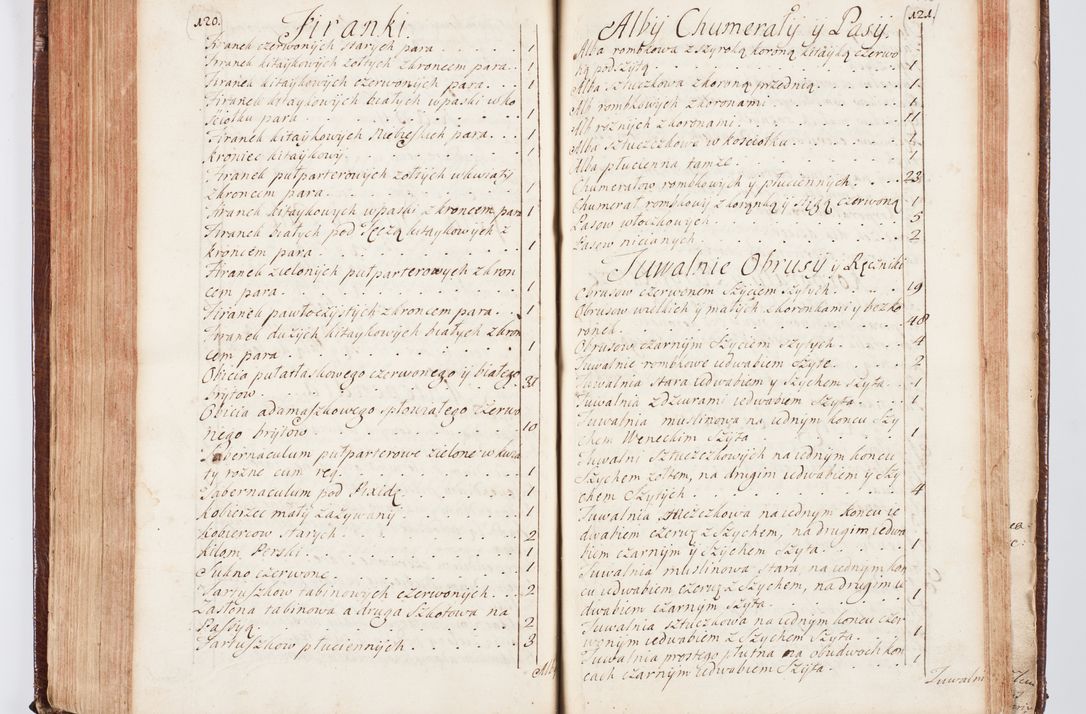 120.
Firanki.
Firanek czerwonych starych para . . . 1
Firanek kitaykowych zołtych zkroncem para . . 1
Firanek kitaykowych czerwonych para . . . 1
Firanek kitaykowych białych wpaski wko
sciołku para . . . 1
Firanek kitaykowych Niebieskich para . . . 1
kroniec kitaykowy . . . 1
Firanek pułparterowych zołtych wkwiaty
zkroncem para . . . 1
Firanek kitaykowych wpaski zkroncem para 1
Firanek białych pod tęczą kitaykowych z
kroncem para . . . 1
Firanek zielonych pułparterowych zkron
cem para . . . 1
Firanek pawłoczystych zkroncem para . . . 1
Firanek duzych kitaykowych białych zkron
cem para . . . 1
Obicia pułatłaskowego czerwonego y białego
brytow . . . 31
Obicia adamaszkowego spłowiałego czerwo
nego brytow . . . 10
Tabernaculum pułparterowe zielone w kwia
ty rozne cum reg. . . . 1
Tabernaculum pod . . . 1
Kobierzec mały zazywany . . . 1
Kobiercow starych . . . 2
Kilam Perski . . . 1
Sukno czerwone . . . 1
Fartuszkow tabinowych czerwonych . . . 2
Zasłona tabinowa a druga szkotowa na
Passyą . . . 2
Fartuszkow płuciennych . . . 3
Alby
121.
Alby Chumerały y Pasy.
Alba rombkowa z szyroką koroną kitayką czerwo
ną podszyta . . . 1
Alba sztuczkowa zkoroną przednią . . . 1
Alb rombkowych zkoronami . . . 1
Alb roznych zkoronami . . . 11
Alba sztuczkowa w kosciołku . . . 1
Alba płucienna tamze . . . 1
Chumerałow rombkowych y płuciennych . . . 23
Chumerał rombkowy zkoronką y stęgą czerwoną 1
Pasow włoczkowych . . . 5
Pasow nicianych . . . 2
Tuwalnie Obrusy y Ręczniki
Obrusow czerwonem szyciem szytych . . . 19
Obrusow wielkich y małych zkoronkami y bez ko
ronek . . . 48
Obrusow czarnym szyciem szytych . . . 4
Tuwalnie rombkowe iedwabiem szyte . . . 2
Tuwalnia stara iedwabiem y szychem szyta . . 1
Tuwalnia zdziurami iedwabiem szyta . . . 1
Tuwalnia muslinowa na iednym koncu szy
chem Weneckim szyta . . . 1
Tuwalni sztuczkowych na iednym koncu
szychem zołtem, na drugim iedwabiem y szy
chem szytych . . . 4
Tuwalnia sztuczkowa na iednym koncu ie
dwabiem czerw: z szychem, na drugim iedwa
biem czarnym y szychem szyta . . . 1
Tuwalnia muslinowa stara, na iednym kon
cu iedwabiem czerw: z szychem, na drugim ie
dwabiem czarnym szyta . . . 1
Tuwalnia sztuczkowa na iednym koncu czer
wonym iedwabiem z szychem szyta . . . 1
Tuwalnia prostego płutna na obudwoch kon
cach czarnym iedwabiem szyta . . . 1
Tuwalni